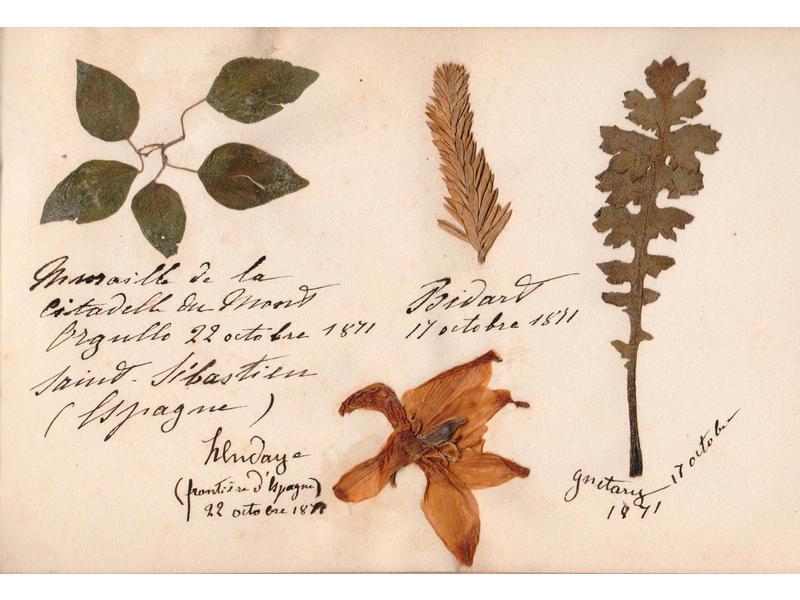 Muraille de la
citadelle du Mont
Orgullo 22 octobre 1871
Saint-Sébastien
(Espagne)
Bidart
17 octobre 1871
hendaye
(frontière d'Espagne)
22 octobre 187
guetary 17 octobre
1871